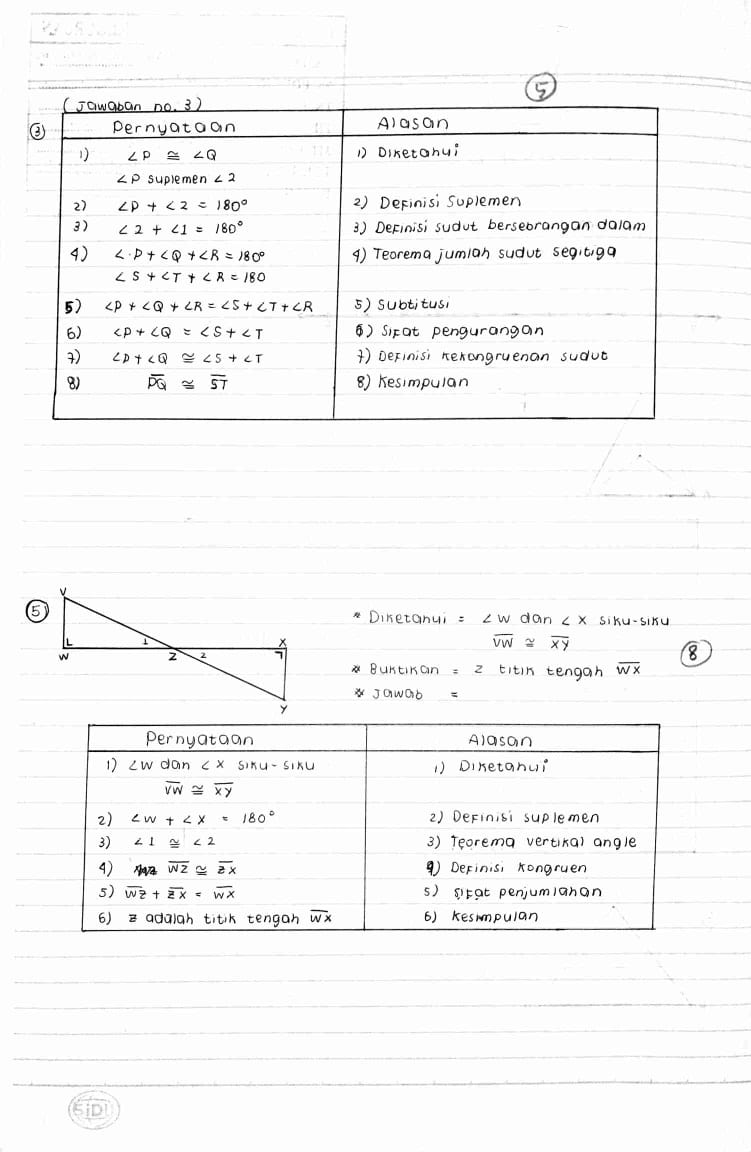 (Jawaban no. 3)
5
③
Pernyataan
Alasan
1) ∠P ≅ ∠Q
1) Diketahui
∠P suplemen ∠2
2) ∠P + ∠2 = 180°
2) Definisi Suplemen
3) ∠2 + ∠1 = 180°
3) Definisi sudut berseorangan dalam
4) ∠P + ∠Q + ∠R = 180°
4) Teorema jumlah sudut segitiga
∠S + ∠T + ∠R = 180
5) ∠P + ∠Q + ∠R = ∠S + ∠T + ∠R
5) Subtitusi
6) ∠P + ∠Q = ∠S + ∠T
6) Sifat pengurangan
7) ∠P + ∠Q ≅ ∠S + ∠T
7) Definisi kekongruenan sudut
8) P̅Q̅ ≅ S̅T̅
8) Kesimpulan
⑤
V
W
1
Z
2
X
Y
* Diketahui = ∠W dan ∠X siku-siku
V̅W̅ ≅ X̅Y̅
8
* Buktikan = Z titik tengah W̅X̅
* Jawab =
Pernyataan
Alasan
1) ∠W dan ∠X siku-siku
1) Diketahui
V̅W̅ ≅ X̅Y̅
2) ∠W + ∠X = 180°
2) Definisi suplemen
3) ∠1 ≅ ∠2
3) Teorema vertikal angle
4) W̅Z̅ ≅ Z̅X̅
4) Definisi kongruen
5) W̅Z̅ + Z̅X̅ = W̅X̅
5) Sifat penjumlahan
6) Z adalah titik tengah W̅X̅
6) Kesimpulan
SiDU